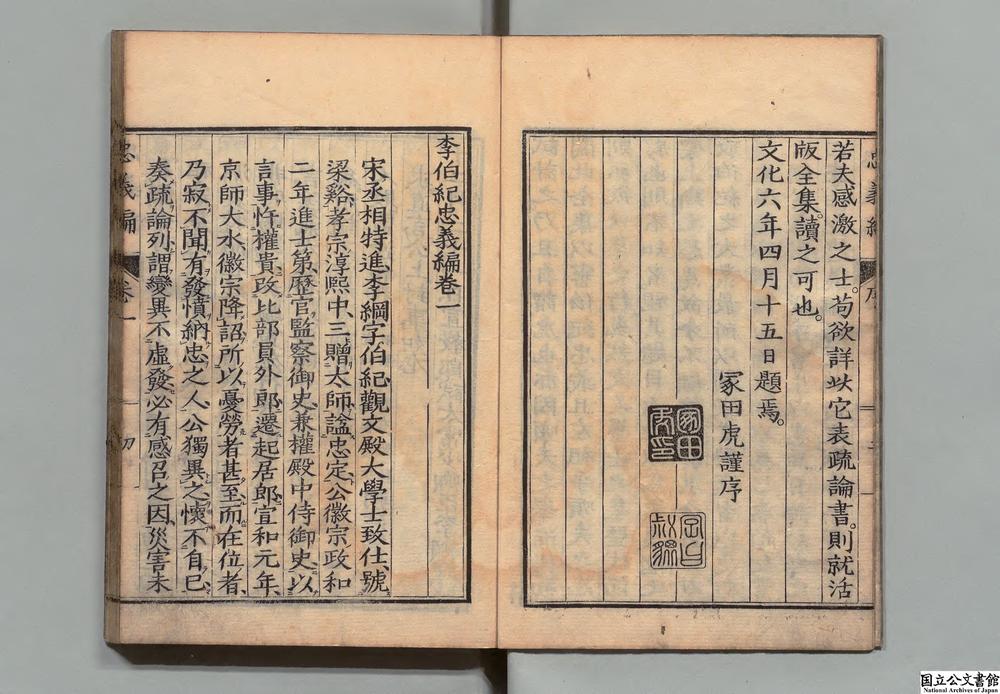 若夫感激之士。苟欲詳其它表疏論書。則就活
版全集。讀之可也。
文化六年四月十五日題焉。
冢田虎謹序
冢田
虎印
忠義編
序
李伯紀忠義編卷一
宋丞相特進李綱字伯紀觀文殿大學士致仕號
梁谿孝宗淳熙中三贈太師諡忠定公徽宗政和
二年進士第歷官監察御史兼權殿中侍御史以
言事忤權貴改比部員外郎遷起居郎宣和元年
京師大水徽宗降詔所以憂勞者甚至而在位者
乃寂不聞有發憤納忠之人公獨異之懷不自已
奏疏論列謂變異不虛發必有感召之因災害未
忠義編
卷一
國立公文書館
National Archives of Japan